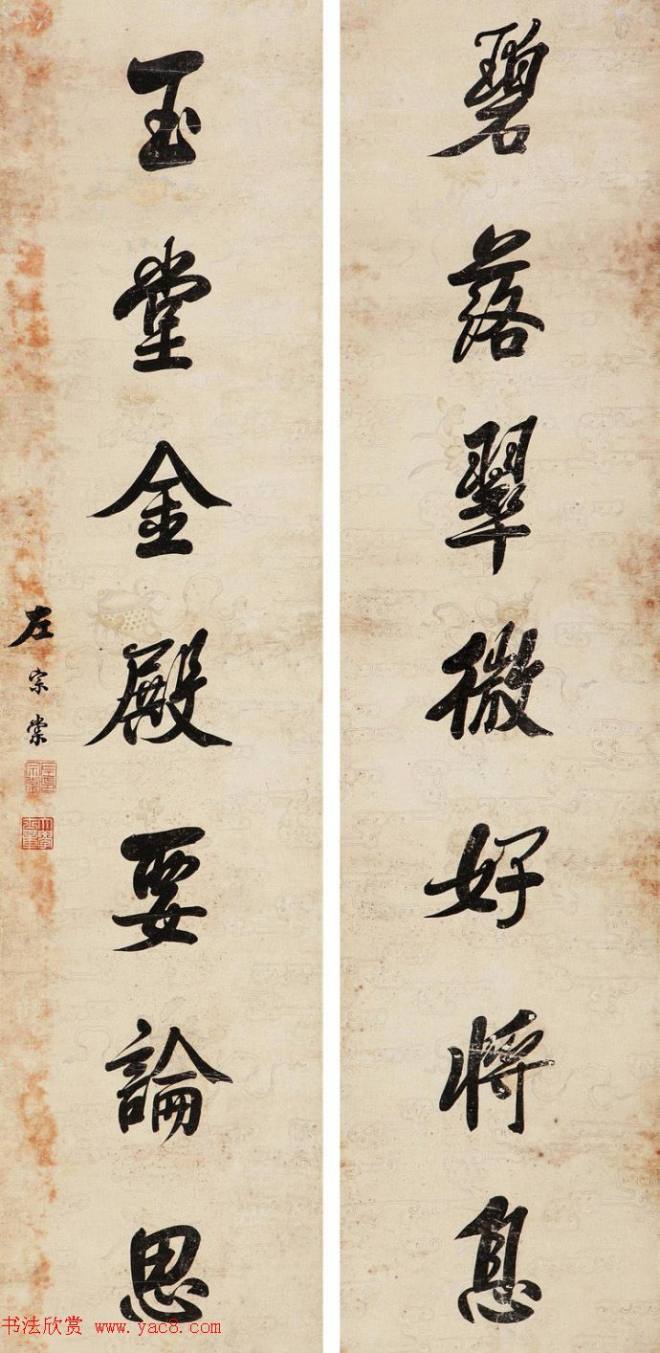 碧落翠微好将息
玉堂金殿要論思
左宗棠
书法欣赏 www.yac8.com